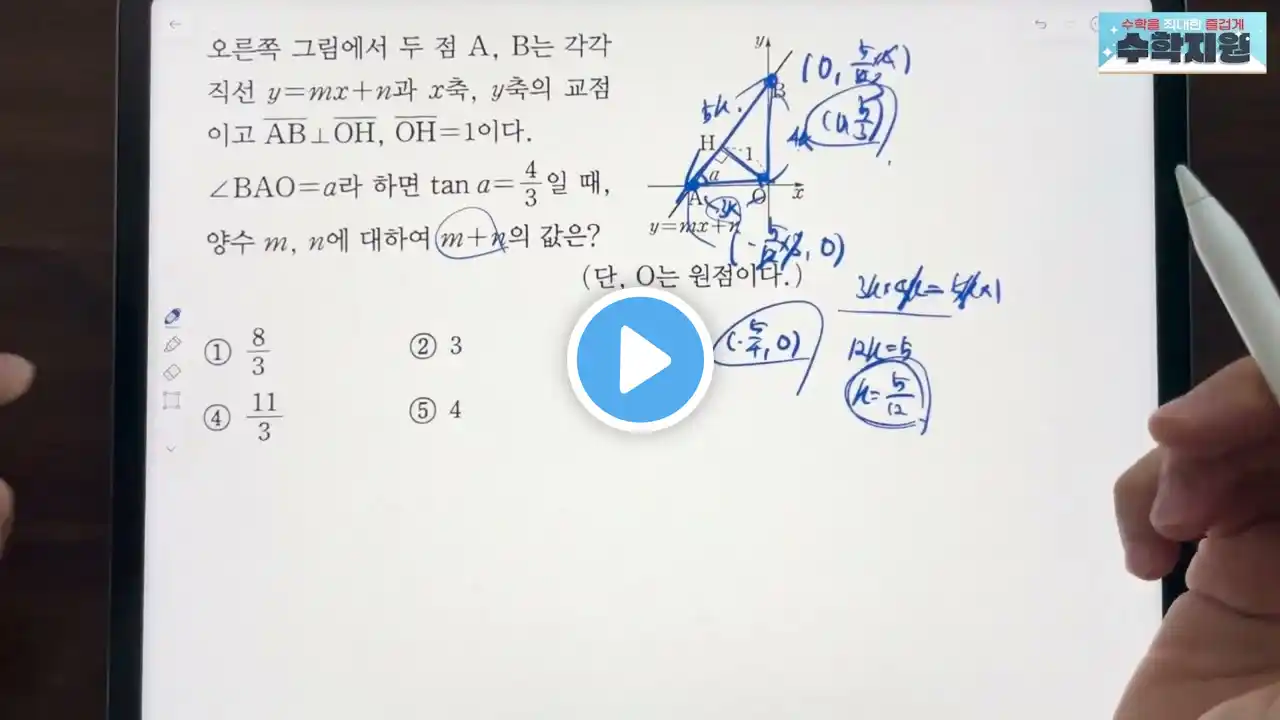 수학을 최대한 즐겁게
수학지원
오른쪽 그림에서 두 점 A, B는 각각
직선 y=mx+n과 x축, y축의 교점
이고 AB⊥OH, OH=1이다.
∠BAO=a라 하면 tan a=4/3일 때,
양수 m, n에 대하여 m+n의 값은?
(단, O는 원점이다.)
① 8/3
② 3
④ 11/3
⑤ 4
y
B
H
1
a
A
O
x
y=mx+n
5k
4k
3k
(0, 5/3)
(-5/12×3, 0)
(-5/4, 0)
3k×4k=5k×1
12k=5
k=5/12